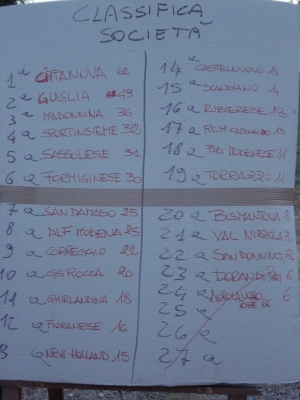 CLASSIFICA
SOCIETÀ
1a CITTANOVA 62
2a GUGLIA 49
3a MADONNINA 36
4a SPORTINSIEME 32
5a SASSOLESE 31
6a FORMIGINESE 30
7a SAN DAMASO 25
8a DLF MODENA 25
9a CORREGGIO 22
10a GS ROCCA 20
11a GHIRLANDINA 18
12a FIORANESE 16
13 a NEW HOLLAND 15
14a CASTELNUOVO 15
15a SCANDIANO 14
16a RUBIERESE 13
17a 13
18a POD MODENESE 11
19a TORRAZZO 11
20a BISMANTOVA 8
21a VAL 8
22a SANDONNINO
23a DORANDO 6
24a 6
25a
26a
27a